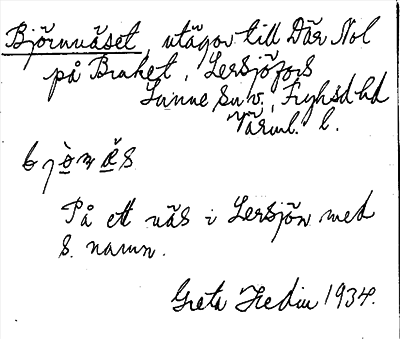 Björnnäset, utägor till Där Nol
på Braket, Lersjöfors
Sunne sn v., Fryksd hd
Värml. l.
bjò̱rnæ̱̆s
På ett näs i Lersjön med
s. namn.
Greta Hedin 1934.